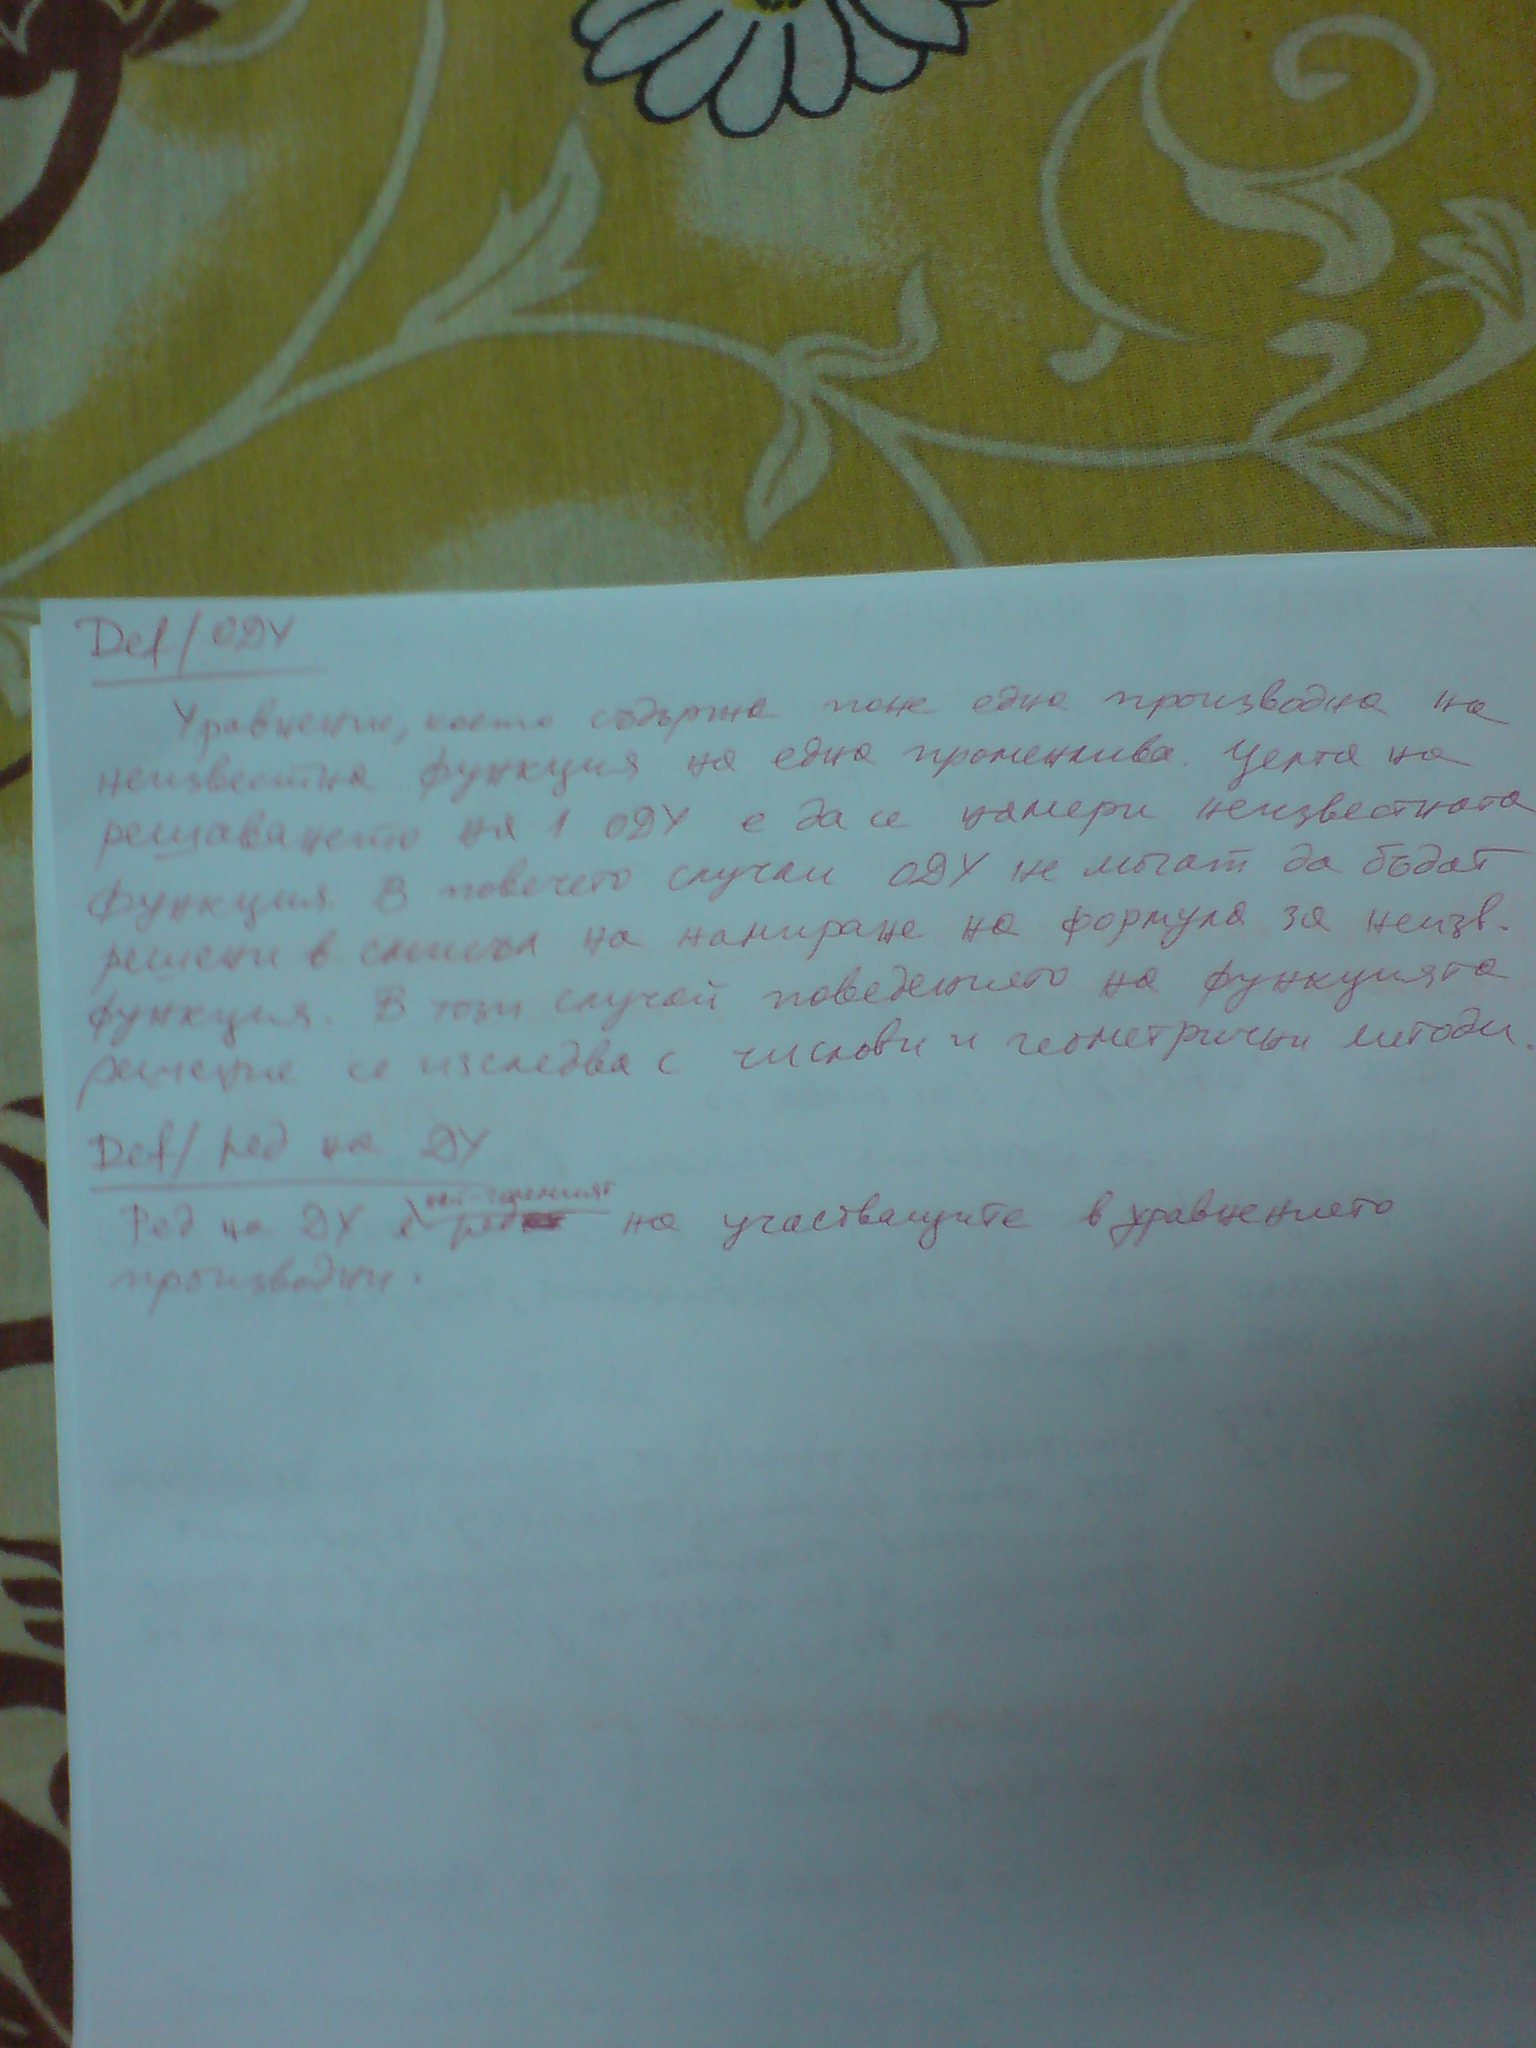 Def/ ОДУ
Уравнение, което съдържа поне една производна на
неизвестна функция на една променлива. Целта на
решаването на 1 ОДУ е да се намери неизвестната
функция. В повечето случаи ОДУ не могат да бъдат
решени в смисъл на намиране на формула за неизв.
функция. В този случай поведението на функцията
решение се изследва с числови и геометрични методи.
Def/ ред на ДУ
най-големият
Ред на ДУ е ред на участващите в уравнението
производни.